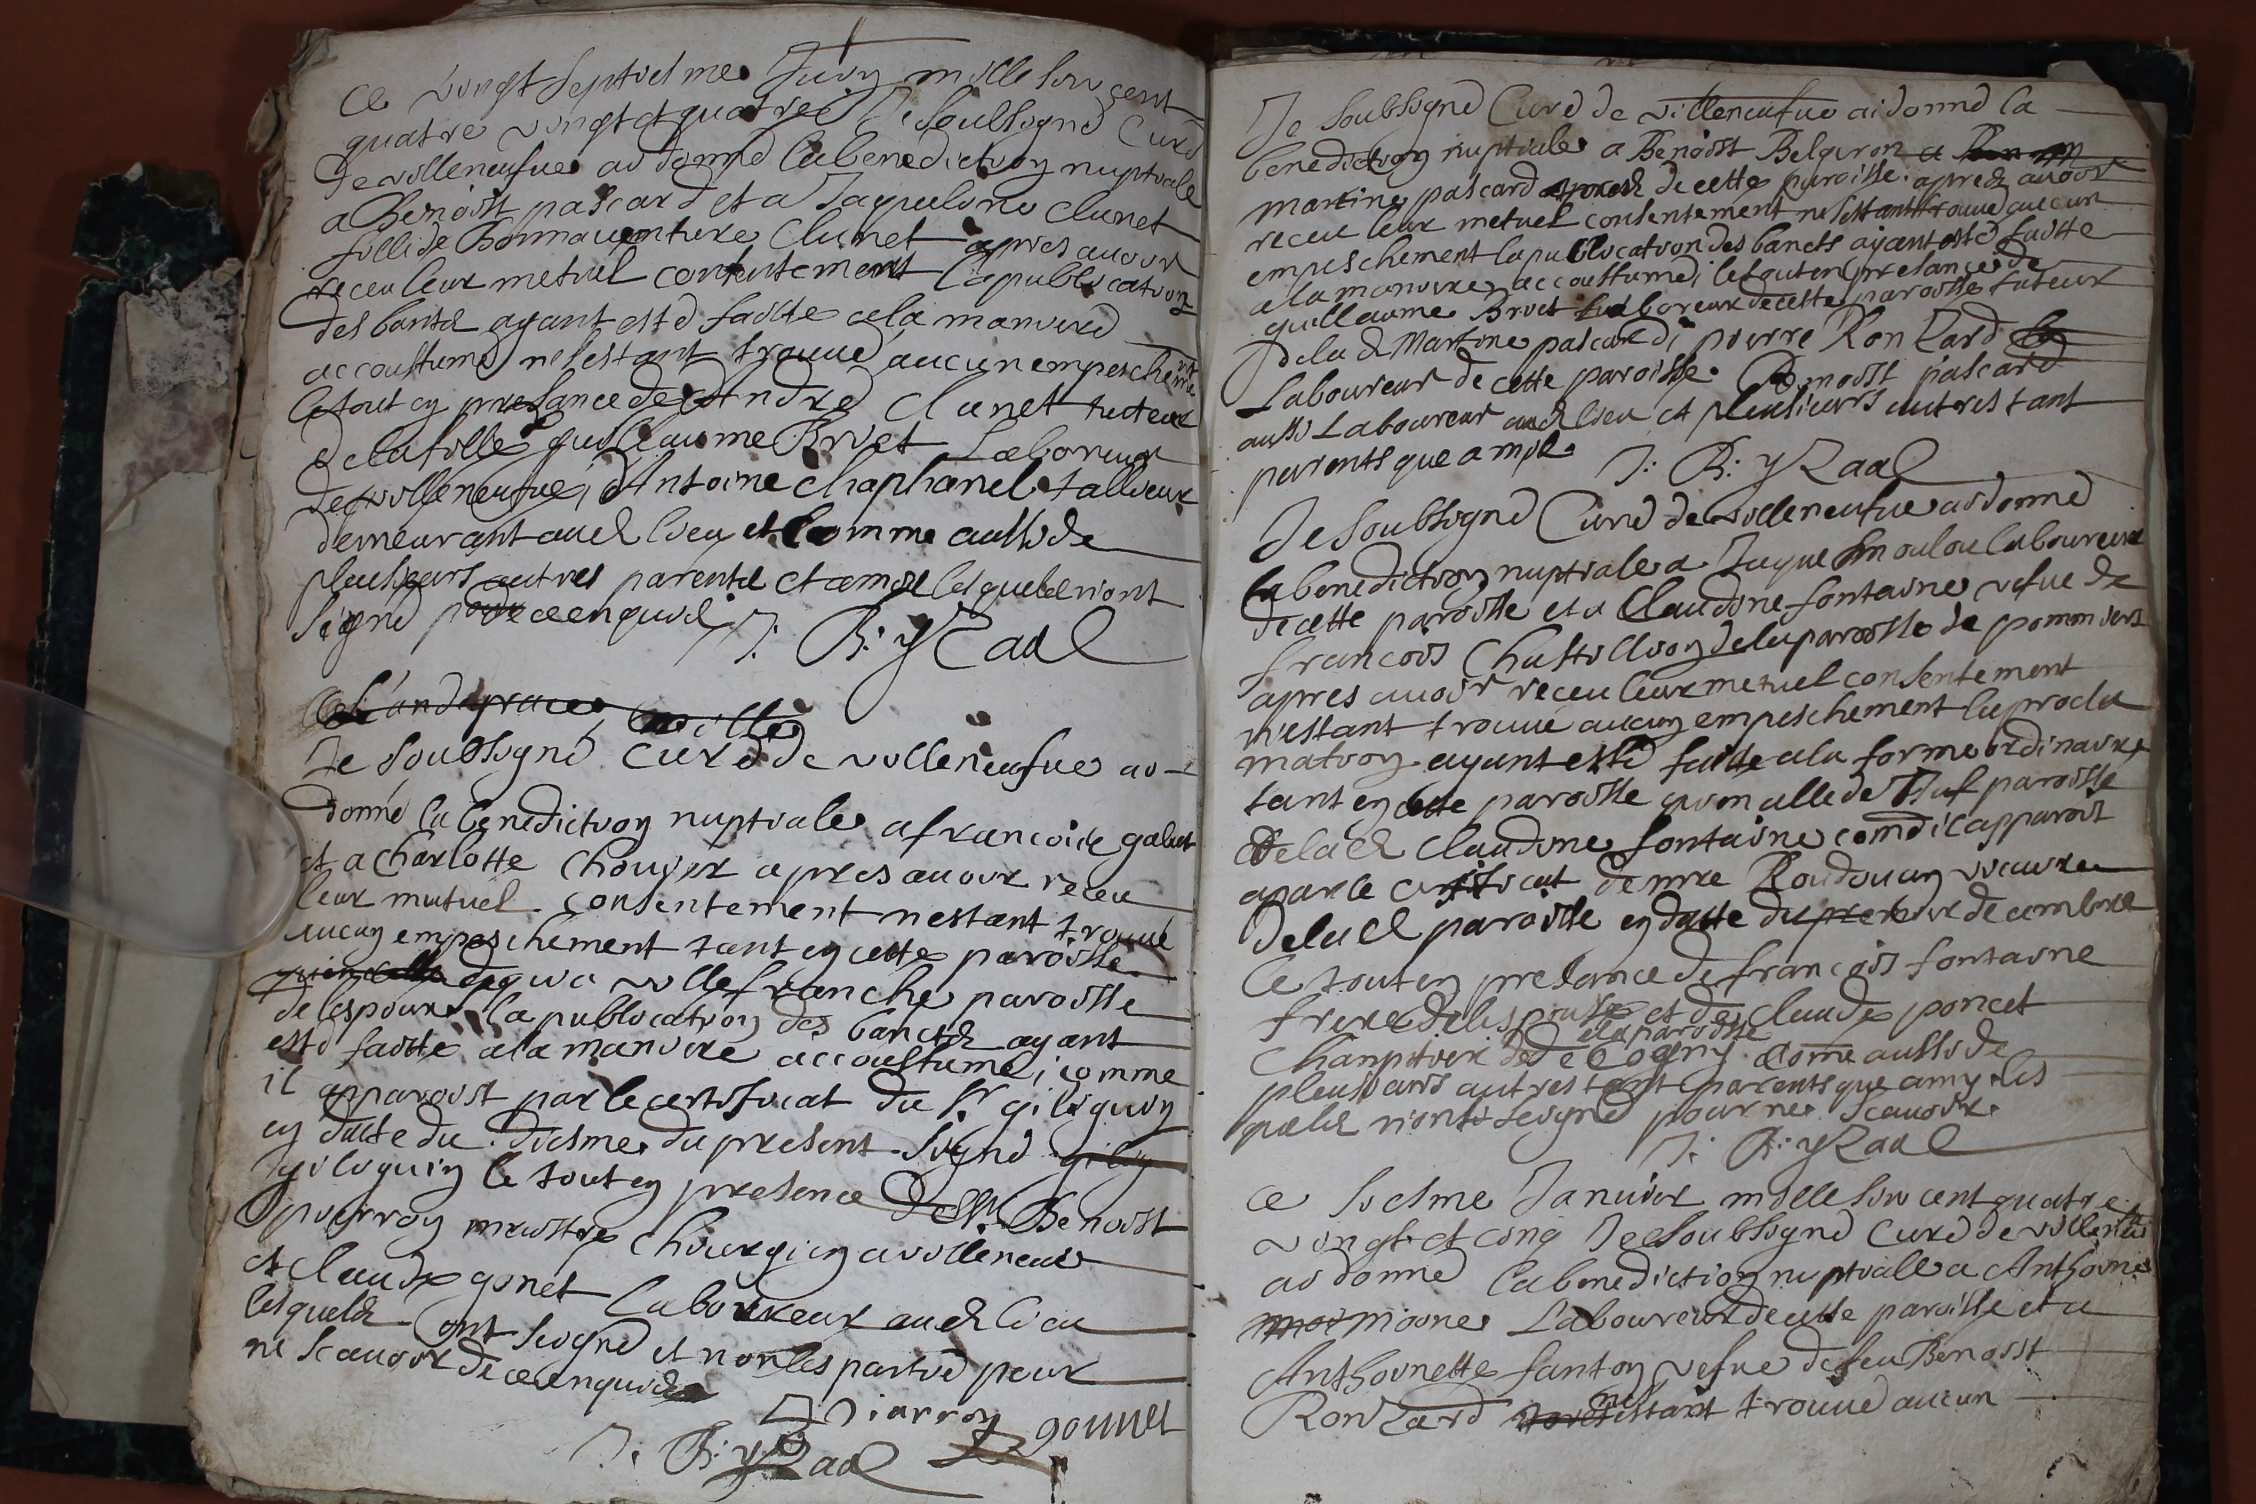 ce vingt septiesme Juin mille six cent
quatre vingt et quatre Je soubsigné Curé
de villeneufve ai donné la benediction nuptiale
a Benoist pascard et a Jaqueline Clunet
fille de Bonnaventure Clunet apres avoir
receu leur metuel consentement la publication
des bancs ayant esté faitte a la maniere
accoustumé ne sestant trouvé aucun empescheme
le tout en presance de André Clunet tuteur
de la fille guillaume Brvet Laboreur
de villeneufve, Antoine Chaphanel tallieur
demeurant aud lieu et comme aussi de
pleusieurs autres parents et amis lesquels n'ont
signé de ce enquis
J: B: yzaal
Je soubsigné Curé de villeneufve ai
donné la benediction nuptiale a francois galut
et a Charlotte Chouyer apres avoir receu
leur mutuel consentement nestant trouvé
aucun empeschement tant en cette paroisse
qua villefranche paroisse
de lespour la publication des bancs ayant
esté faitte a la maniere accoustumé, comme
il apparoist par le certificat du Sr giloquin
en datte du dixsme du present signé
giloquin le tout en presence de Sr Benoist
pierron maistre Chirurgien a villeneuve
et claude gonet Laboureur aud lieu
lesquels ont signé et non les partie pour
ne scavoir de ce enquis
pierron gonnet
J: B: yzaal
Je soubsigné Curé de villeneufve ai donné la
benediction nuptiale a Benoist Belgiron a
martine pascard de cette paroisse apres avoir
receu leur metuel consentement ne sestant trouvé aucun
empeschement la publication des bancts ayant esté faitte
a la maniere accoustumé, le tout en presance de
guillaume Brvet laboreur de cette paroisse tuteur
de lad Martine pascard, pierre Ronzard
Laboureur de cette paroisse. Benoist pascard
aussi Laboureur aud lieu et pleusieurs autres tant
parents que amis.
J: B: yzaal
Je soubsigné Curé de villeneufve ai donné
la benediction nuptiale a Jaque laboureur
de cette paroisse et a Claudine fontaine vefve de
francois Chastillion de la paroisse de pommiers
apres avoir receu leur metuel consentement
n'estant trouvé aucun empeschement la procla
mation ayant esté faitte a la forme ordinaire
tant en cette paroisse qu'en celle de paroisse
de lad claudine fontaine comē il apparoit
a par le certificat de mre vicaire
de lad paroisse en datte du premier decembre
le tout en presance de francois fontaine
frere de lespouse et de claude poncet
de la paroisse
de Cogny. Come aussi de
pleusieurs autres tant parents que amy les
quels n'ont seigné pour ne scavoir.
J: B: yzaal
ce sixsme Janvier mille six cent quatre
vingt et cinq Je soubsigné Curé de villeneufve
ai donné la benediction nuptialle a Anthoine
mione Laboureur de cette paroisse et a
Anthoinette fanton vefve de feu Benoist
Ronzard ne sestant trouvé aucun